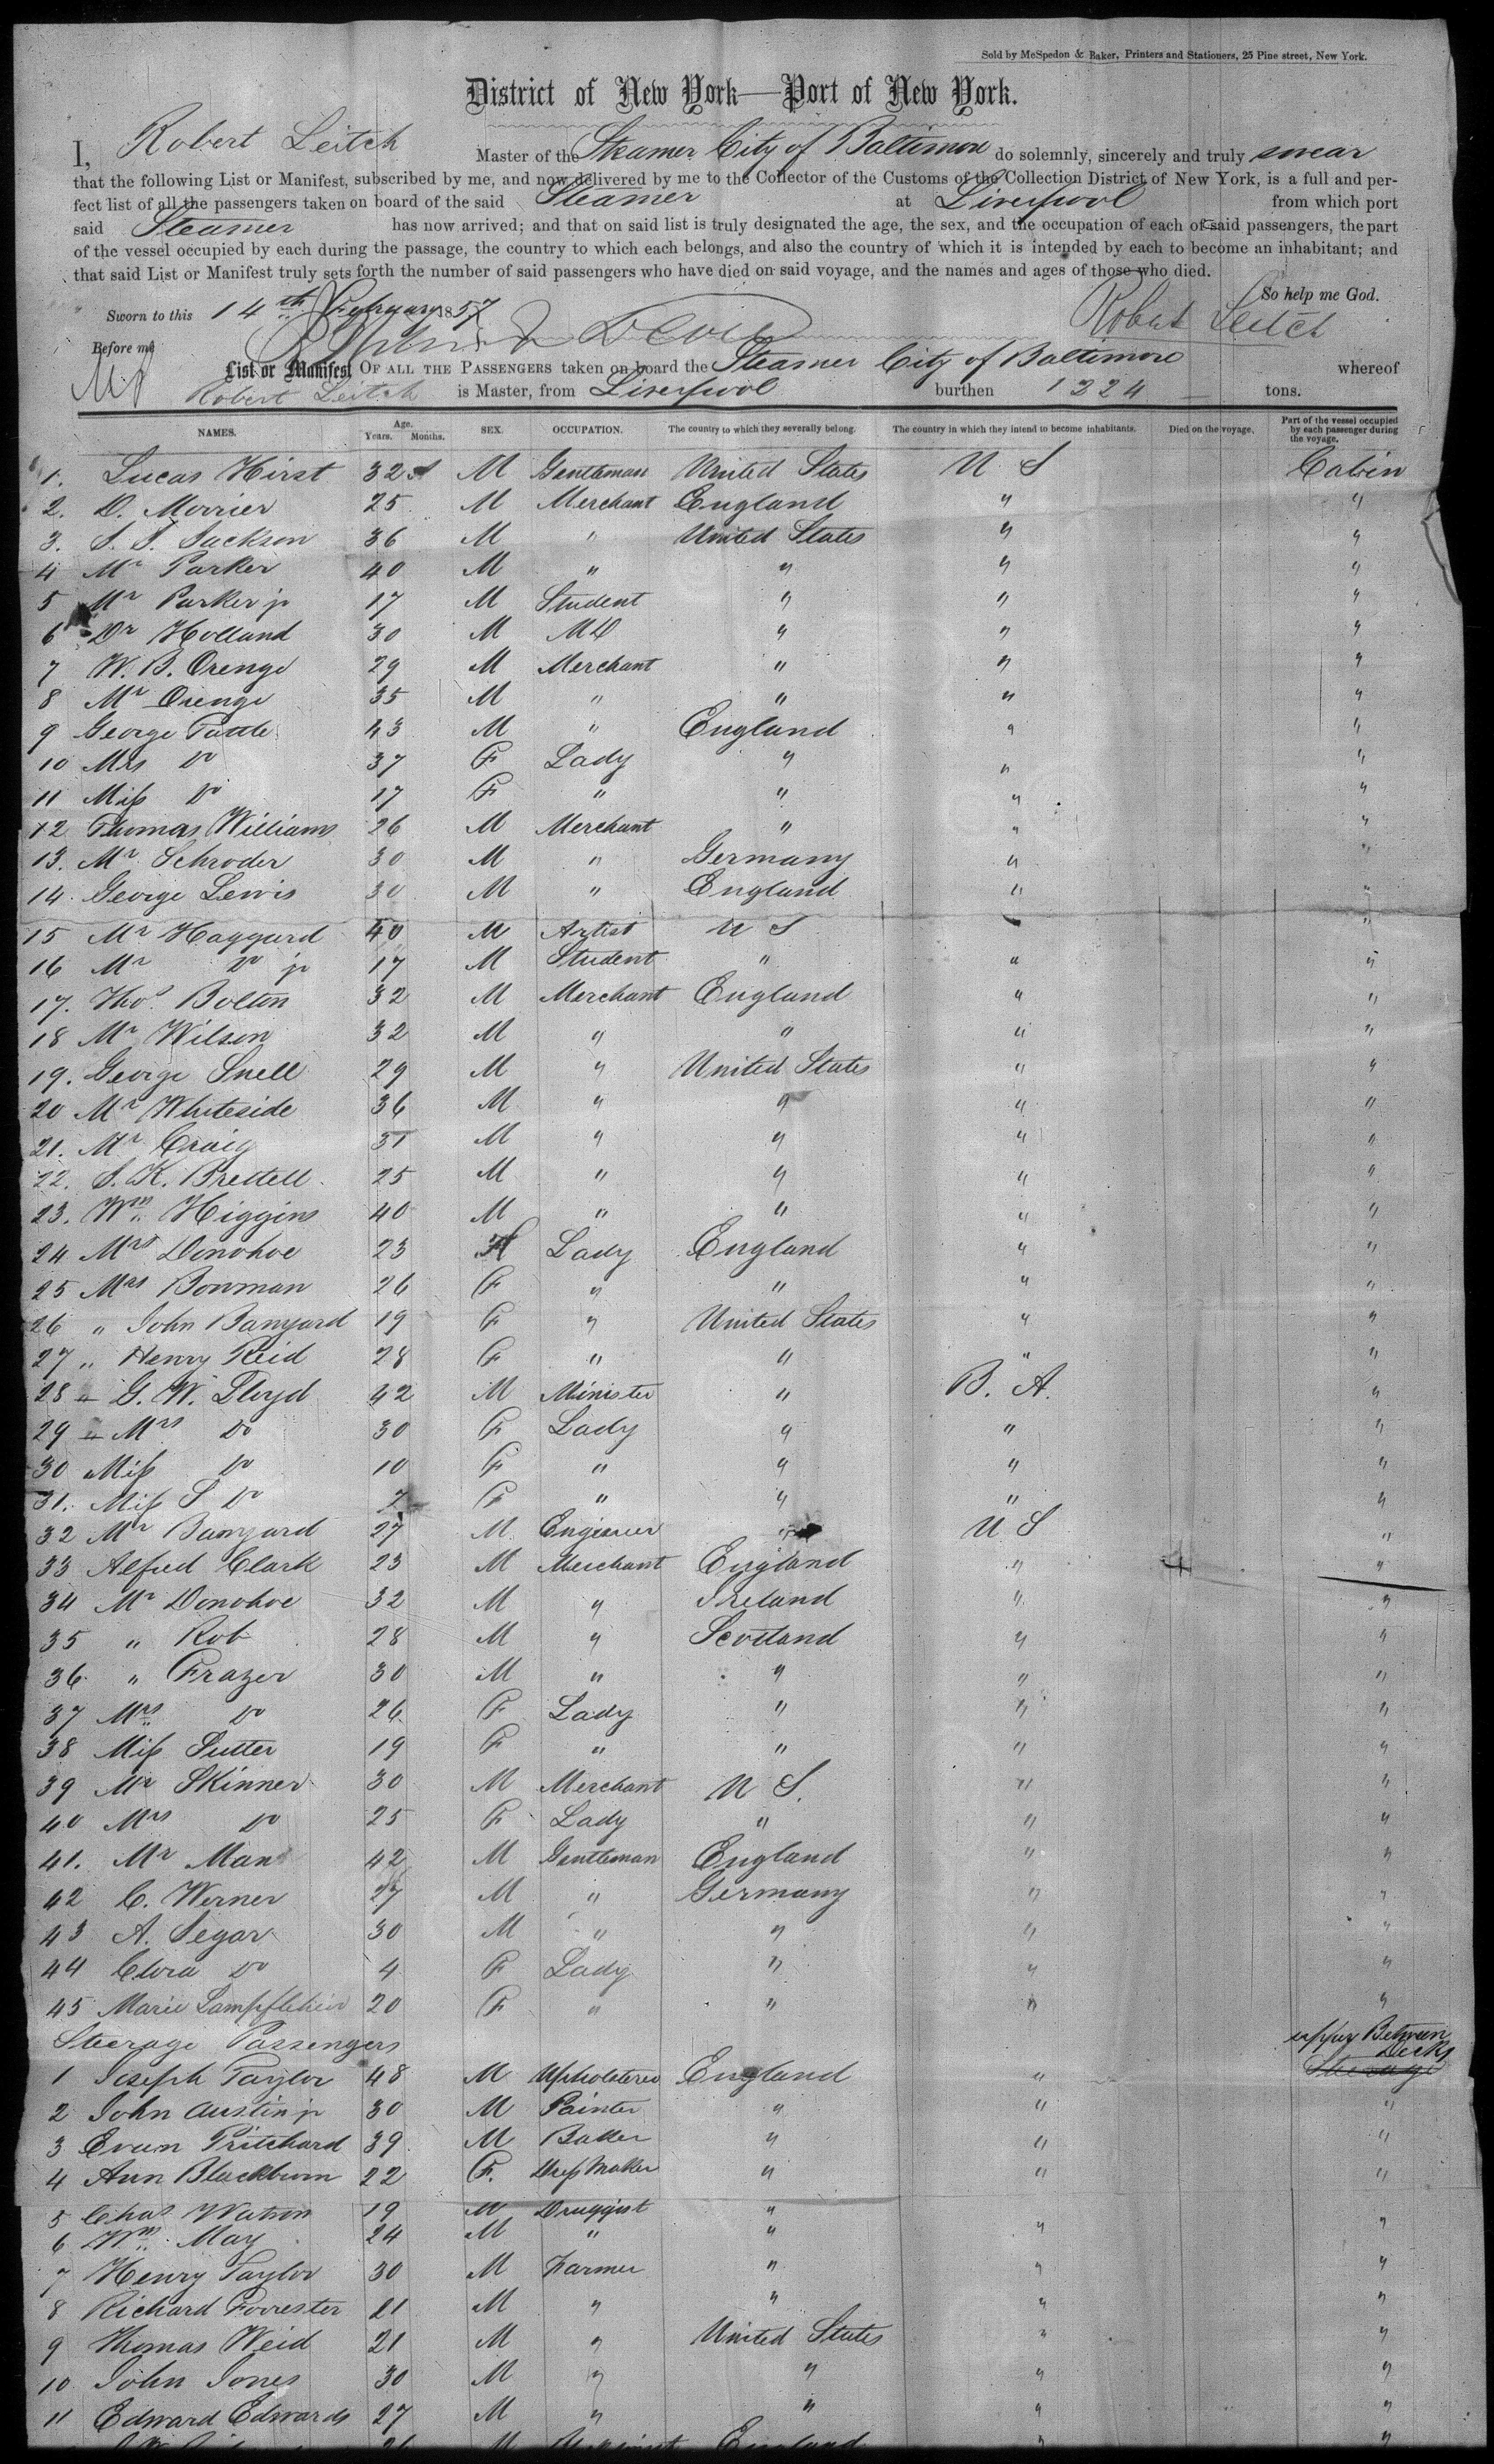 Sold by McSpedon & Baker, Printers and Stationers, 25 Pine street, New York.
District of New York—Port of New York.
I, Robert Leitch Master of the Steamer City of Baltimore do solemnly, sincerely and truly swear
that the following List or Manifest, subscribed by me, and now delivered by me to the Collector of the Customs of the Collection District of New York, is a full and per-
fect list of all the passengers taken on board of the said Steamer at Liverpool from which port
said Steamer has now arrived; and that on said list is truly designated the age, the sex, and the occupation of each of said passengers, the part
of the vessel occupied by each during the passage, the country to which each belongs, and also the country of which it is intended by each to become an inhabitant; and
that said List or Manifest truly sets forth the number of said passengers who have died on said voyage, and the names and ages of those who died.
So help me God.
Sworn to this 14th February 1857 Robert Leitch
Before me
List or Manifest OF ALL THE PASSENGERS taken on board the Steamer City of Baltimore whereof
Robert Leitch is Master, from Liverpool burthen 1224 tons.
NAMES. Age. Years. Months. SEX. OCCUPATION. The country to which they severally belong. The country in which they intend to become inhabitants. Died on the voyage. Part of the vessel occupied by each passenger during the voyage.
1. Lucas Hirst 32 M Gentleman United States U S Cabin
2. D. Morrier 25 M Merchant England " "
3. S. T. Jackson 36 M " United States " "
4 Mr Parker 40 M " " " "
5 Mr Parker jr 17 M Student " " "
6 Dr Holland 30 M MD " " "
7 W. B. Orenge 29 M Merchant " " "
8 Mr Orenge 35 M " " " "
9 George Tuttle 43 M " England " "
10 Mrs Do 37 F Lady " " "
11 Miss Do 17 F " " " "
12 Thomas Williams 26 M Merchant " " "
13. Mr Schroder 30 M " Germany " "
14. George Lewis 30 M " England " "
15 Mr Haggard 40 M Artist U S " "
16 Mr Do jr 17 M Student " " "
17. Thos Bolton 32 M Merchant England " "
18 Mr Wilson 32 M " " " "
19. George Snell 29 M " United States " "
20 Mr Whiteside 36 M " " " "
21. Mr Craig 31 M " " " "
22. S. K. Brettell 25 M " " " "
23. Wm Higgins 40 M " " " "
24 Mrs Donohoe 23 F Lady England " "
25 Mrs Bowman 26 F " " " "
26 " John Banyard 19 F " United States " "
27 " Henry Reid 28 F " " " "
28 " G. W. Floyd 42 M Minister " B. A. "
29 " Mrs Do 30 F Lady " " "
30 Miss Do 10 F " " " "
31. Miss S Do 7 F " " " "
32 Mr Banyard 27 M Engineer " U S "
33 Alfred Clark 23 M Merchant England " "
34 Mr Donohoe 32 M " Ireland " "
35 " Rob 28 M " Scotland " "
36 " Frazer 30 M " " " "
37 Mrs Do 26 F Lady " " "
38 Miss Sutter 19 F " " " "
39 Mr Skinner 30 M Merchant U S. " "
40 Mrs Do 25 F Lady " " "
41. Mr Man 42 M Gentleman England " "
42 C. Werner 27 M " Germany " "
43 A. Segar 30 M " " " "
44 Clora Do 4 F Lady " " "
45 Marie 20 F " " " "
Steerage Passengers upper Between Decks
1 Joseph Taylor 48 M Upholsterer England " Steerage
2 John Austin jr 30 M Painter " " "
3 Evan Pritchard 39 M Baker " " "
4 Ann Blackburn 22 F. Dress Maker " " "
5 Chas Watson 19 M Druggist "
6 Wm May 24 M " " " "
7 Henry Taylor 30 M Farmer " " "
8 Richard Forrester 21 M " " " "
9 Thomas Weid 21 M " United States " "
10 John Jones 30 M " " " "
11 Edward Edwards 27 M " " " "
26 M England " "